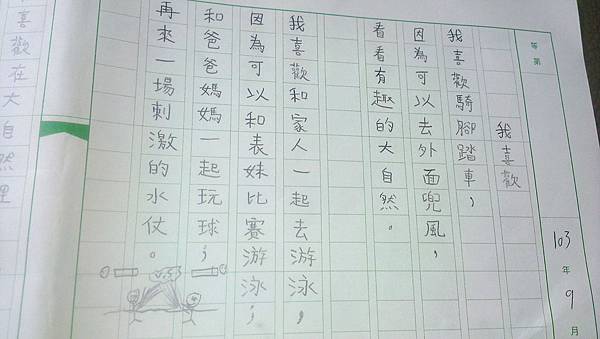 等第
103年9月
我喜歡
我喜歡騎腳踏車，
因為可以去外面兜風，
看看有趣的大自然。
我喜歡和家人一起去游泳，
因為可以和表妹比賽游泳；
和爸爸媽媽一起玩球；
再來一場刺激的水仗。
喜歡在大自然裡